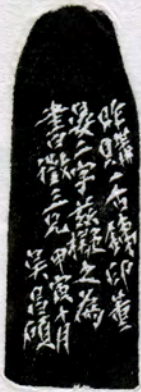 昨購一古銕印董
二字茲擬之為
書徵三兄甲寅十月
吳昌碩